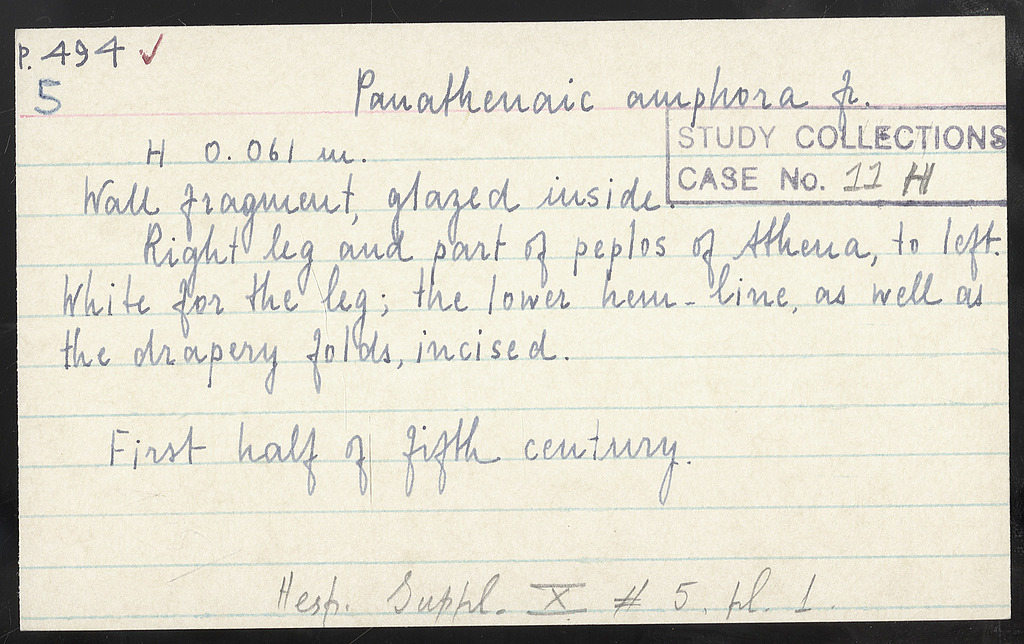 P. 494 ✓
5
Panathenaic amphora fr.
STUDY COLLECTIONS
CASE No. 11 H
H 0.061 m.
Wall fragment, glazed inside.
Right leg and part of peplos of Athena, to left.
White for the leg; the lower hem-line, as well as
the drapery folds, incised.
First half of fifth century.
Hesp. Suppl. X # 5, pl. 1.